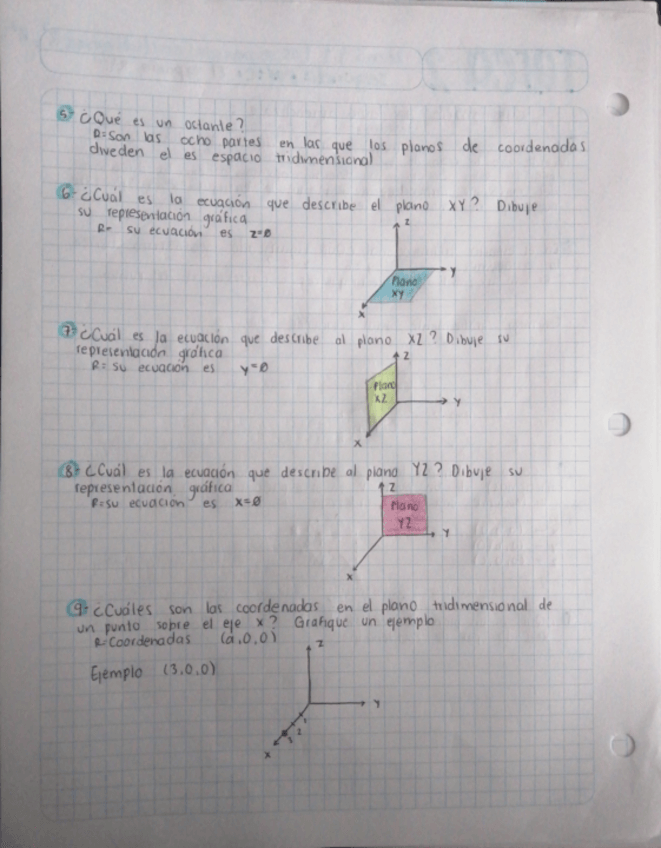 5- ¿Qué es un octante?
R= son las ocho partes en las que los planos de coordenadas
dividen el es espacio tridimensional
6- ¿Cuál es la ecuación que describe el plano XY? Dibuje
su representación gráfica
R- su ecuación es z=0
Z
Y
Plano
XY
X
7- ¿Cuál es la ecuación que describe al plano XZ? Dibuje su
representación gráfica
R= su ecuación es y=0
Z
Plano
XZ
Y
X
8- ¿Cuál es la ecuación que describe al plano YZ? Dibuje su
representación gráfica
R= su ecuación es x=0
Z
Plano
YZ
Y
X
9- ¿Cuáles son las coordenadas en el plano tridimensional de
un punto sobre el eje x? Grafique un ejemplo
R- Coordenadas (a,0,0)
Ejemplo (3,0,0)
Z
Y
1
2
3
X